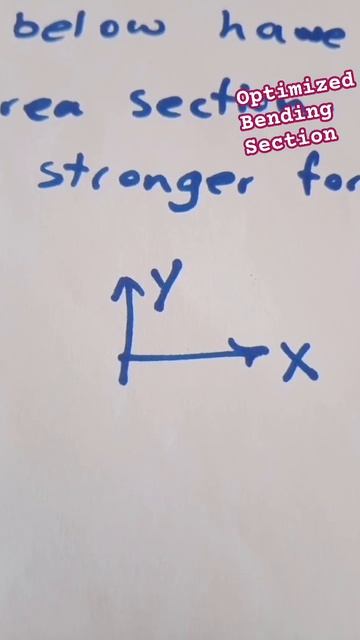 below have
rea section
stronger for
Optimized
Bending
Section
Y
X